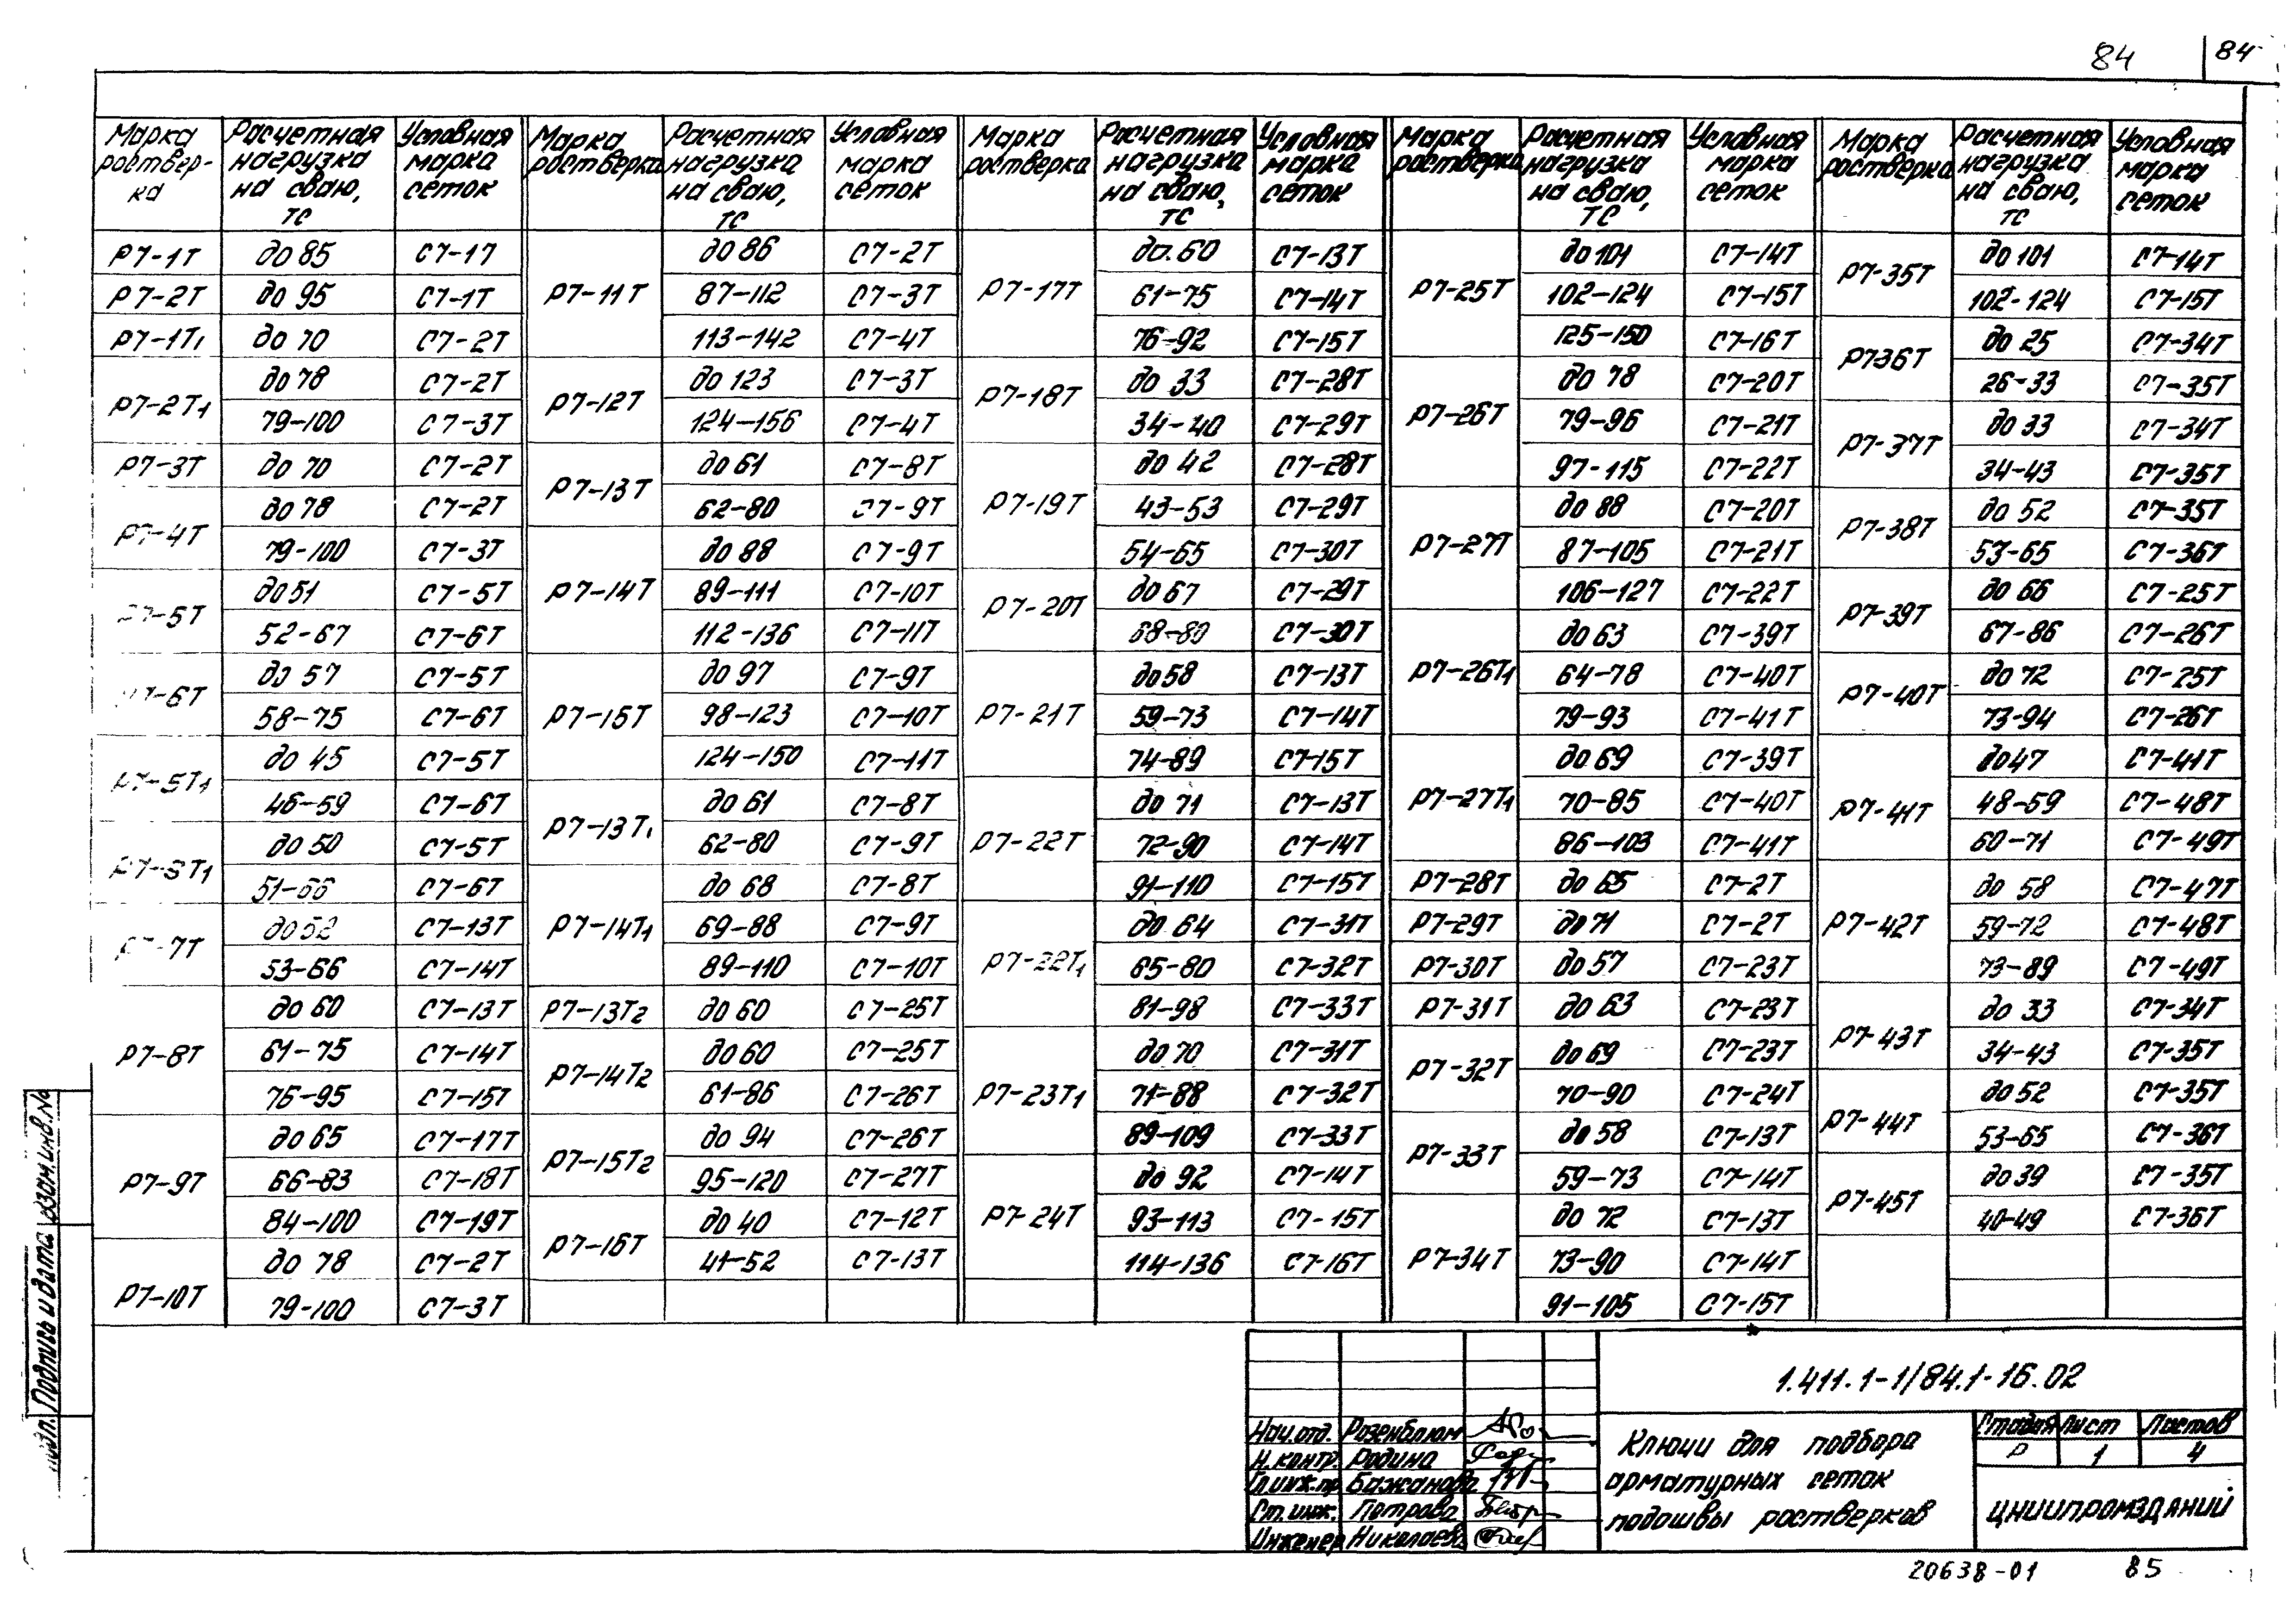 84
84
Марка ростверка
Расчетная нагрузка на сваю, тс
Условная марка сеток
Марка ростверка
Расчетная нагрузка на сваю, тс
Условная марка сеток
Марка ростверка
Расчетная нагрузка на сваю, тс
Условная марка сеток
Марка ростверка
Расчетная нагрузка на сваю, тс
Условная марка сеток
Марка ростверка
Расчетная нагрузка на сваю, тс
Условная марка сеток
Р7-1Т до 85 С7-17
Р7-2Т до 95 С7-1Т
Р7-1Т1 до 70 С7-2Т
Р7-2Т1 до 78 С7-2Т
79-100 С7-3Т
Р7-3Т до 70 С7-2Т
Р7-4Т до 78 С7-2Т
79-100 С7-3Т
Р7-5Т до 51 С7-5Т
52-67 С7-6Т
Р7-6Т до 57 С7-5Т
58-75 С7-6Т
Р7-5Т1 до 45 С7-5Т
46-59 С7-6Т
до 50 С7-5Т
51-66 С7-6Т
Р7-7Т до 52 С7-13Т
53-66 С7-14Т
Р7-8Т до 60 С7-13Т
61-75 С7-14Т
76-95 С7-15Т
Р7-9Т до 65 С7-17Т
66-83 С7-18Т
84-100 С7-19Т
Р7-10Т до 78 С7-2Т
79-100 С7-3Т
Р7-11Т до 86 С7-2Т
87-112 С7-3Т
113-142 С7-4Т
Р7-12Т до 123 С7-3Т
124-156 С7-4Т
Р7-13Т до 61 С7-8Т
62-80 С7-9Т
Р7-14Т до 88 С7-9Т
89-111 С7-10Т
112-136 С7-11Т
Р7-15Т до 97 С7-9Т
98-123 С7-10Т
124-150 С7-11Т
Р7-13Т1 до 61 С7-8Т
62-80 С7-9Т
Р7-14Т1 до 68 С7-8Т
69-88 С7-9Т
89-110 С7-10Т
Р7-13Т2 до 60 С7-25Т
Р7-14Т2 до 60 С7-25Т
61-86 С7-26Т
Р7-15Т2 до 94 С7-26Т
95-120 С7-27Т
Р7-16Т до 40 С7-12Т
41-52 С7-13Т
Р7-17Т до 60 С7-13Т
61-75 С7-14Т
76-92 С7-15Т
Р7-18Т до 33 С7-28Т
34-40 С7-29Т
Р7-19Т до 42 С7-28Т
43-53 С7-29Т
54-65 С7-30Т
Р7-20Т до 67 С7-29Т
68-80 С7-30Т
Р7-21Т до 58 С7-13Т
59-73 С7-14Т
74-89 С7-15Т
Р7-22Т до 71 С7-13Т
72-90 С7-14Т
91-110 С7-15Т
Р7-22Т1 до 64 С7-31Т
65-80 С7-32Т
81-98 С7-33Т
Р7-23Т1 до 70 С7-31Т
71-88 С7-32Т
89-109 С7-33Т
Р7-24Т до 92 С7-14Т
93-113 С7-15Т
114-136 С7-16Т
Р7-25Т до 101 С7-14Т
102-124 С7-15Т
125-150 С7-16Т
Р7-26Т до 78 С7-20Т
79-96 С7-21Т
97-115 С7-22Т
Р7-27Т до 88 С7-20Т
87-105 С7-21Т
106-127 С7-22Т
Р7-26Т1 до 63 С7-39Т
64-78 С7-40Т
79-93 С7-41Т
Р7-27Т1 до 69 С7-39Т
70-85 С7-40Т
86-103 С7-41Т
Р7-28Т до 65 С7-2Т
Р7-29Т до 71 С7-2Т
Р7-30Т до 57 С7-23Т
Р7-31Т до 63 С7-23Т
Р7-32Т до 69 С7-23Т
70-90 С7-24Т
Р7-33Т до 58 С7-13Т
59-73 С7-14Т
Р7-34Т до 72 С7-13Т
73-90 С7-14Т
91-105 С7-15Т
Р7-35Т до 101 С7-14Т
102-124 С7-15Т
Р736Т до 25 С7-34Т
26-33 С7-35Т
Р7-37Т до 33 С7-34Т
34-43 С7-35Т
Р7-38Т до 52 С7-35Т
53-65 С7-36Т
Р7-39Т до 66 С7-25Т
67-86 С7-26Т
Р7-40Т до 72 С7-25Т
73-94 С7-26Т
Р7-41Т до 47 С7-41Т
48-59 С7-48Т
60-71 С7-49Т
Р7-42Т до 58 С7-47Т
59-72 С7-48Т
73-89 С7-49Т
Р7-43Т до 33 С7-34Т
34-43 С7-35Т
Р7-44Т до 52 С7-35Т
53-65 С7-36Т
Р7-45Т до 39 С7-35Т
40-49 С7-36Т
Взам.инв.№
Подпись и дата
подл.
1.411.1-1/84.1-16.02
Нач.отд. Розенблюм
Н.контр. Родина
Гл.инж.пр Бажанова
Ст.инж. Петрова
Инженер Николаева
Ключи для подбора
арматурных сеток
подошвы ростверков
Стадия Лист Листов
Р 1 4
ЦНИИПРОМЗДАНИЙ
20638-01 85